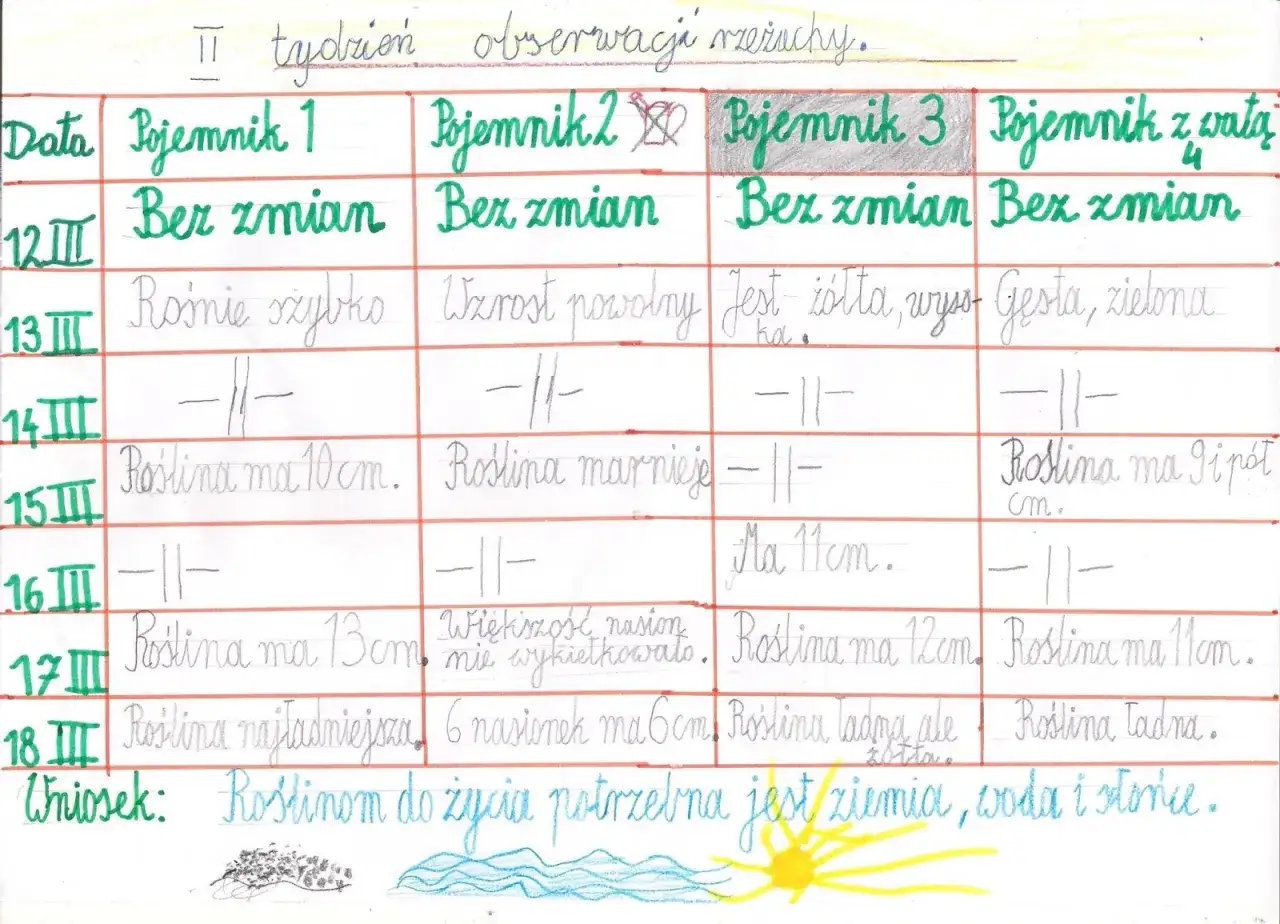 II tydzień obserwacji rzeżuchy.
Data Pojemnik 1 Pojemnik 2 Pojemnik 3 Pojemnik z watą
4
12 III Bez zmian Bez zmian Bez zmian Bez zmian
13 III Rośnie szybko Wzrost powolny Jest żółta, wyso-
ka. Gęsta, zielona
14 III -||- -||- -||- -||-
15 III Roślina ma 10 cm. Roślina marnieje -||- Roślina ma 9 i pół
cm.
16 III -||- -||- Ma 11 cm. -||-
17 III Roślina ma 13 cm. Większość nasion
nie wykiełkowało. Roślina ma 12 cm. Roślina ma 11 cm.
18 III Roślina najładniejsza. 6 nasionek ma 6 cm. Roślina ładna ale
żółta. Roślina ładna.
Wniosek: Roślinom do życia potrzebna jest ziemia, woda i słońce.